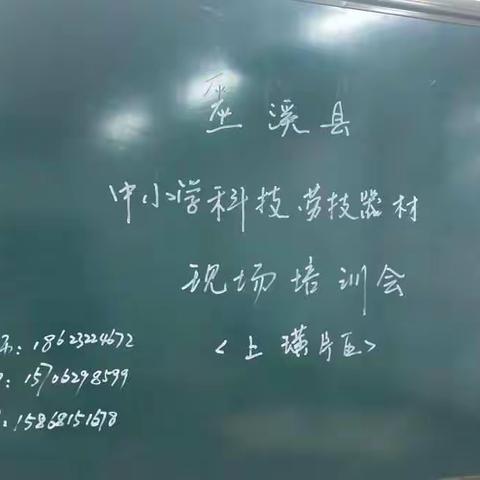 垄溪县
中小学科技、劳技器材
现场培训会
<上璜片区>
: 18623224672
: 15706298599
: 15868151678